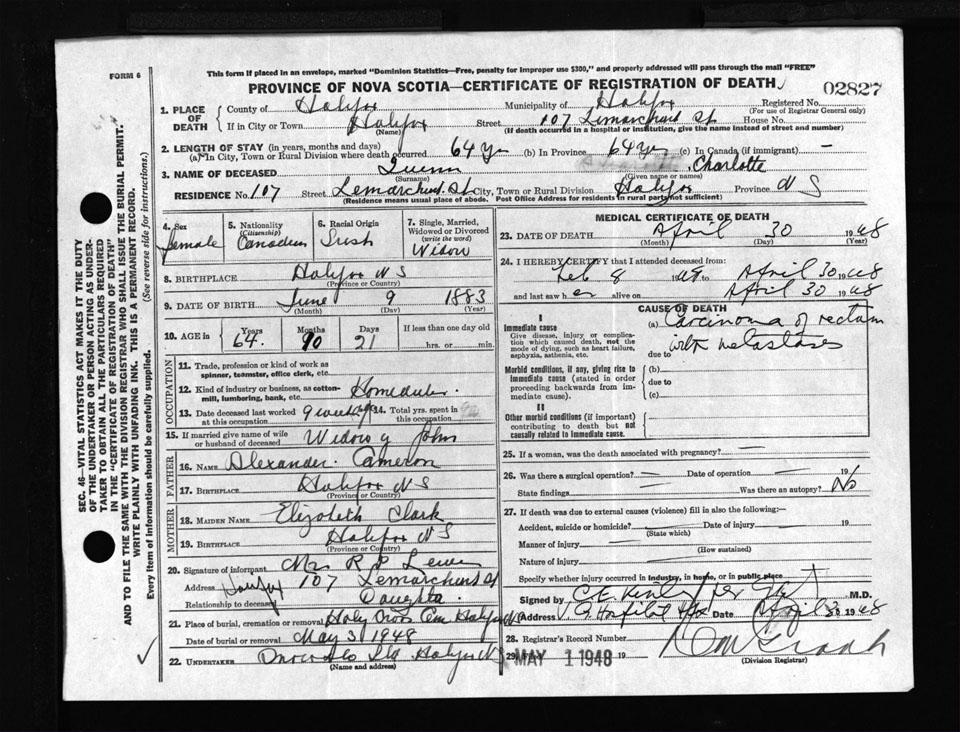 This form if placed in an envelope, marked "Dominion Statistics—Free, penalty for improper use $300," and properly addressed will pass through the mail "FREE"
FORM 6
PROVINCE OF NOVA SCOTIA—CERTIFICATE OF REGISTRATION OF DEATH
02827
1. PLACE OF DEATH
County of Halifax Municipality of Halifax Registered No.
(For use of Registrar General only)
If in City or Town Halifax Street 107 Lemarchand St House No.
(Name) (If death occurred in a hospital or institution, give the name instead of street and number)
2. LENGTH OF STAY (in years, months and days)
(a) In City, Town or Rural Division where death occurred 64 Yr (b) In Province 64 Yr (c) In Canada (if immigrant) —
3. NAME OF DECEASED Quinn Charlotte
(Surname) (Given name or names)
RESIDENCE No. 107 Street Lemarchand St City, Town or Rural Division Halifax Province N S
(Residence means usual place of abode. Post Office Address for residents in rural parts not sufficient)
4. Sex female
5. Nationality (Citizenship) Canadian
6. Racial Origin Irish
7. Single, Married, Widowed or Divorced (write the word) Widow
8. BIRTHPLACE Halifax N S
(Province or Country)
9. DATE OF BIRTH June 9 1883
(Month) (Day) (Year)
10. AGE in Years Months Days If less than one day old
64 10 21 hrs. or min.
OCCUPATION
11. Trade, profession or kind of work as spinner, teamster, office clerk, etc.
12. Kind of industry or business, as cotton-mill, lumbering, bank, etc. Homeduties
13. Date deceased last worked at this occupation 9 weeks 14. Total yrs. spent in this occupation
15. If married give name of wife or husband of deceased Widow of John
FATHER
16. NAME Alexander Cameron
17. BIRTHPLACE Halifax N S
(Province or Country)
MOTHER
18. MAIDEN NAME Elizabeth Clark
19. BIRTHPLACE Halifax N S
(Province or Country)
20. Signature of informant Mrs R P
Address Halifax 107 Lemarchand St
Relationship to deceased Daughter
21. Place of burial, cremation or removal Holy Cross Cem Halifax N S
Date of burial or removal May 3 1948
22. UNDERTAKER Ltd Halifax N S
(Name and address)
MEDICAL CERTIFICATE OF DEATH
23. DATE OF DEATH April 30 1948
(Month) (Day) (Year)
24. I HEREBY CERTIFY that I attended deceased from:
Feb 8 1948 to April 30 1948
and last saw her alive on April 30 1948
CAUSE OF DEATH
I
Immediate cause
Give disease, injury or complication which caused death, not the mode of dying, such as heart failure, asphyxia, asthenia, etc.
(a) Carcinoma of rectum
with metastases
due to
Morbid conditions, if any, giving rise to immediate cause (stated in order proceeding backwards from immediate).
(b)
due to
(c)
II
Other morbid conditions (if important) contributing to death but not causally related to immediate cause.
25. If a woman, was the death associated with pregnancy? —
26. Was there a surgical operation? — Date of operation — 19
State findings Was there an autopsy? No
27. If death was due to external causes (violence) fill in also the following:—
Accident, suicide or homicide? Date of injury 19
(State which)
Manner of injury
(How sustained)
Nature of injury
Specify whether injury occurred in industry, in home, or in public place
Signed by M.D.
Address V. G. Hospital Hfx Date April 30 1948
28. Registrar's Record Number
29. MAY 1 1948 19
(Division Registrar)
SEC. 46—VITAL STATISTICS ACT MAKES IT THE DUTY OF THE UNDERTAKER OR PERSON ACTING AS UNDERTAKER TO OBTAIN ALL THE PARTICULARS REQUIRED IN THE "CERTIFICATE OF REGISTRATION OF DEATH" AND TO FILE THE SAME WITH THE DIVISION REGISTRAR WHO SHALL ISSUE THE BURIAL PERMIT.
WRITE PLAINLY WITH UNFADING INK. THIS IS A PERMANENT RECORD.
Every item of information should be carefully supplied. (See reverse side for instructions.)